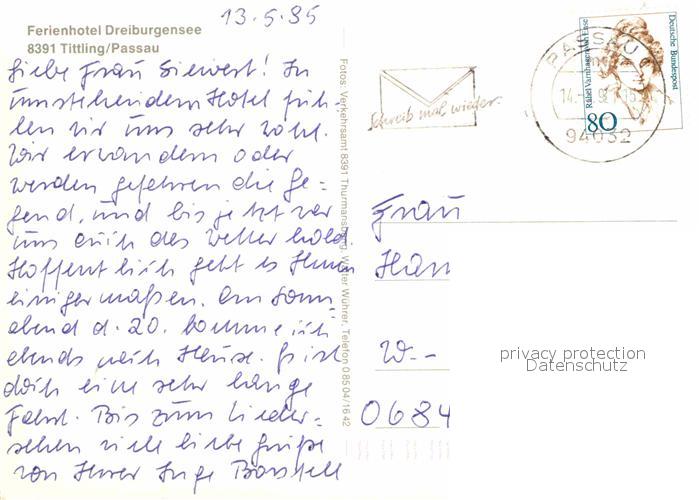 13.5.95
Ferienhotel Dreiburgensee
8391 Tittling/Passau
Liebe Frau Siewert! In
umstehendem Hotel füh-
len wir uns sehr wohl.
Wir erwandern oder
werden gefahren die Ge=
gend, und bis jetzt war
uns auch das Wetter hold.
Hoffentlich geht es Ihnen
einigermaßen. Am Sonn=
abend d. 20. komme ich
abends nach Hause. Es ist
doch eine sehr lange
Fahrt. Bis zum Wieder=
sehen viele liebe Grüße
von Ihrer Inge
Fotos: Verkehrsamt 8391 Thurmansbang, Walter Wuhrer, Telefon 0 85 04/16 42
Schreib mal wieder
PASSAU
94032
Rahel Varnhagen von Ense
Deutsche Bundespost
80
Frau
Han
W--
0684
privacy protection
Datenschutz